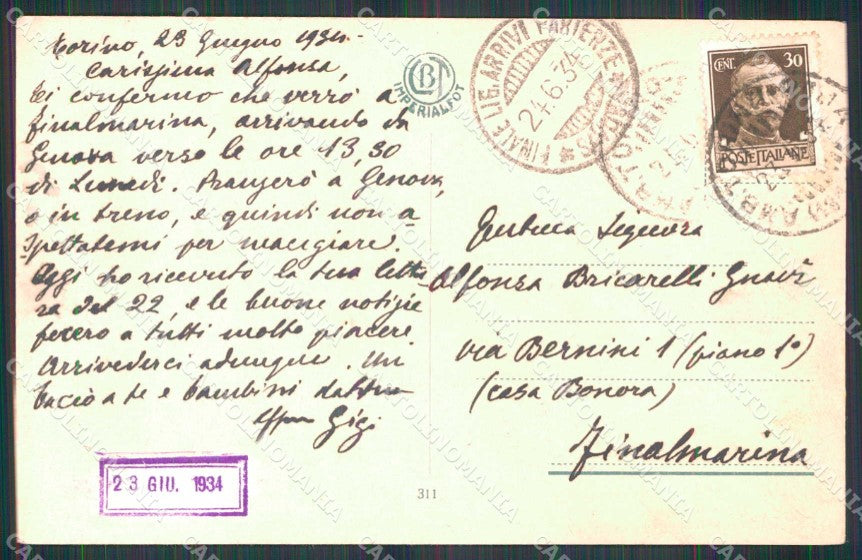 Torino, 23 Giugno 1934.
Carissima Alfonsa,
ti confermo che verrò a
Finalmarina, arrivando da
Genova verso le ore 13,30
di Lunedì. Pranzerò a Genova,
o in treno, e quindi non a-
spettatemi per mangiare.
Oggi ho ricevuto la tua lette-
ra del 22, e le buone notizie
fecero a tutti molto piacere.
Arrivederci adunque. Un
bacio a te e bambini dal tuo
Gigi
CBT
IMPERIALFOT
FINALE LIG. ARRIVI PARTENZE
24.6.34
CENT. 30
POSTE ITALIANE
Signora
Alfonsa Bricarelli
via Bernini 1 (piano 1º)
(casa Bonora)
Finalmarina
23 GIU. 1934
311
CARTOLINOMANIA